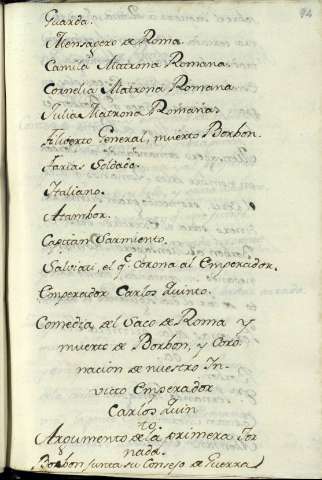 94
Guarda.
Mensagero de Roma.
Camila Matrona Romana.
Cornelia Matrona Romana
Julia Matrona Romana.
Filiberto General, muerto Borbon.
Farias Soldado.
Italiano.
Atambor.
Capitan Sarmiento.
Salviati, el q.e Corona al Emperador.
Emperador Carlos Quinto.
Comedia, del Saco de Roma y
muerte de Borbon, y Coro-
nacion de nuestro In-
victo Emperador
Carlos Quin
to.
Argumento de la primera Jor
nada.
Borbon junta su Consejo de Guerra